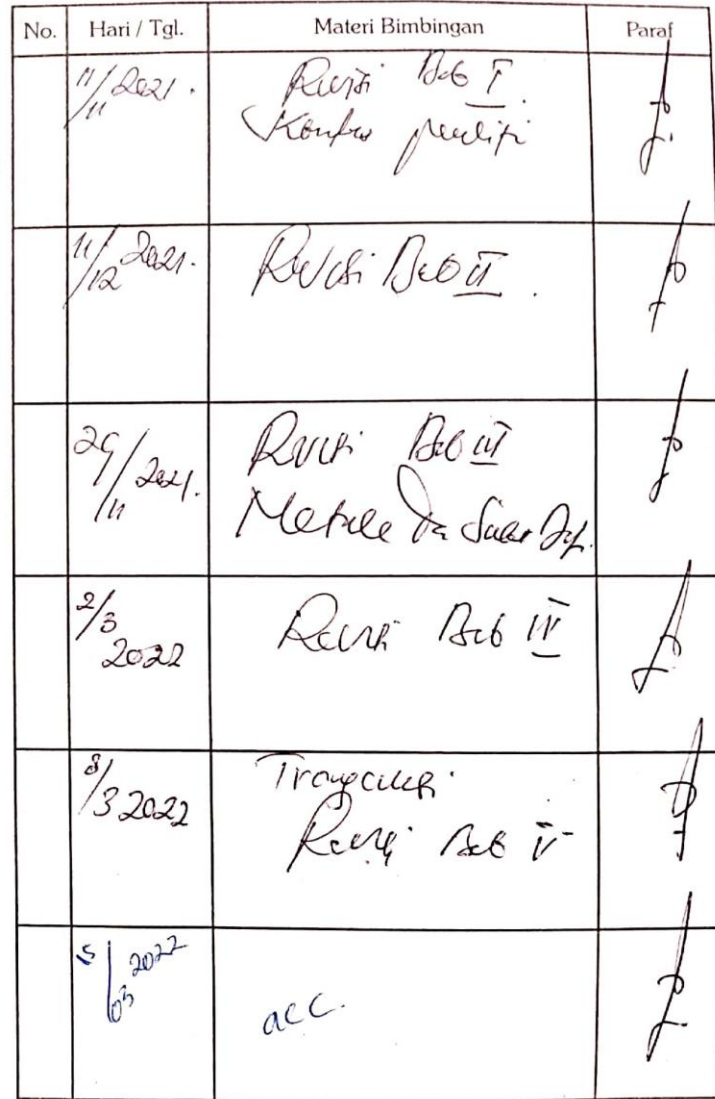 No. Hari / Tgl. Materi Bimbingan Paraf
11/11 2021. Revisi Bab I.
11/12 2021. Revisi Bab II.
29/11 2021. Revisi Bab III
Metode
2/3 2022 Revisi Bab IV
8/3 2022
Revisi Bab V
15/03 2022 acc.